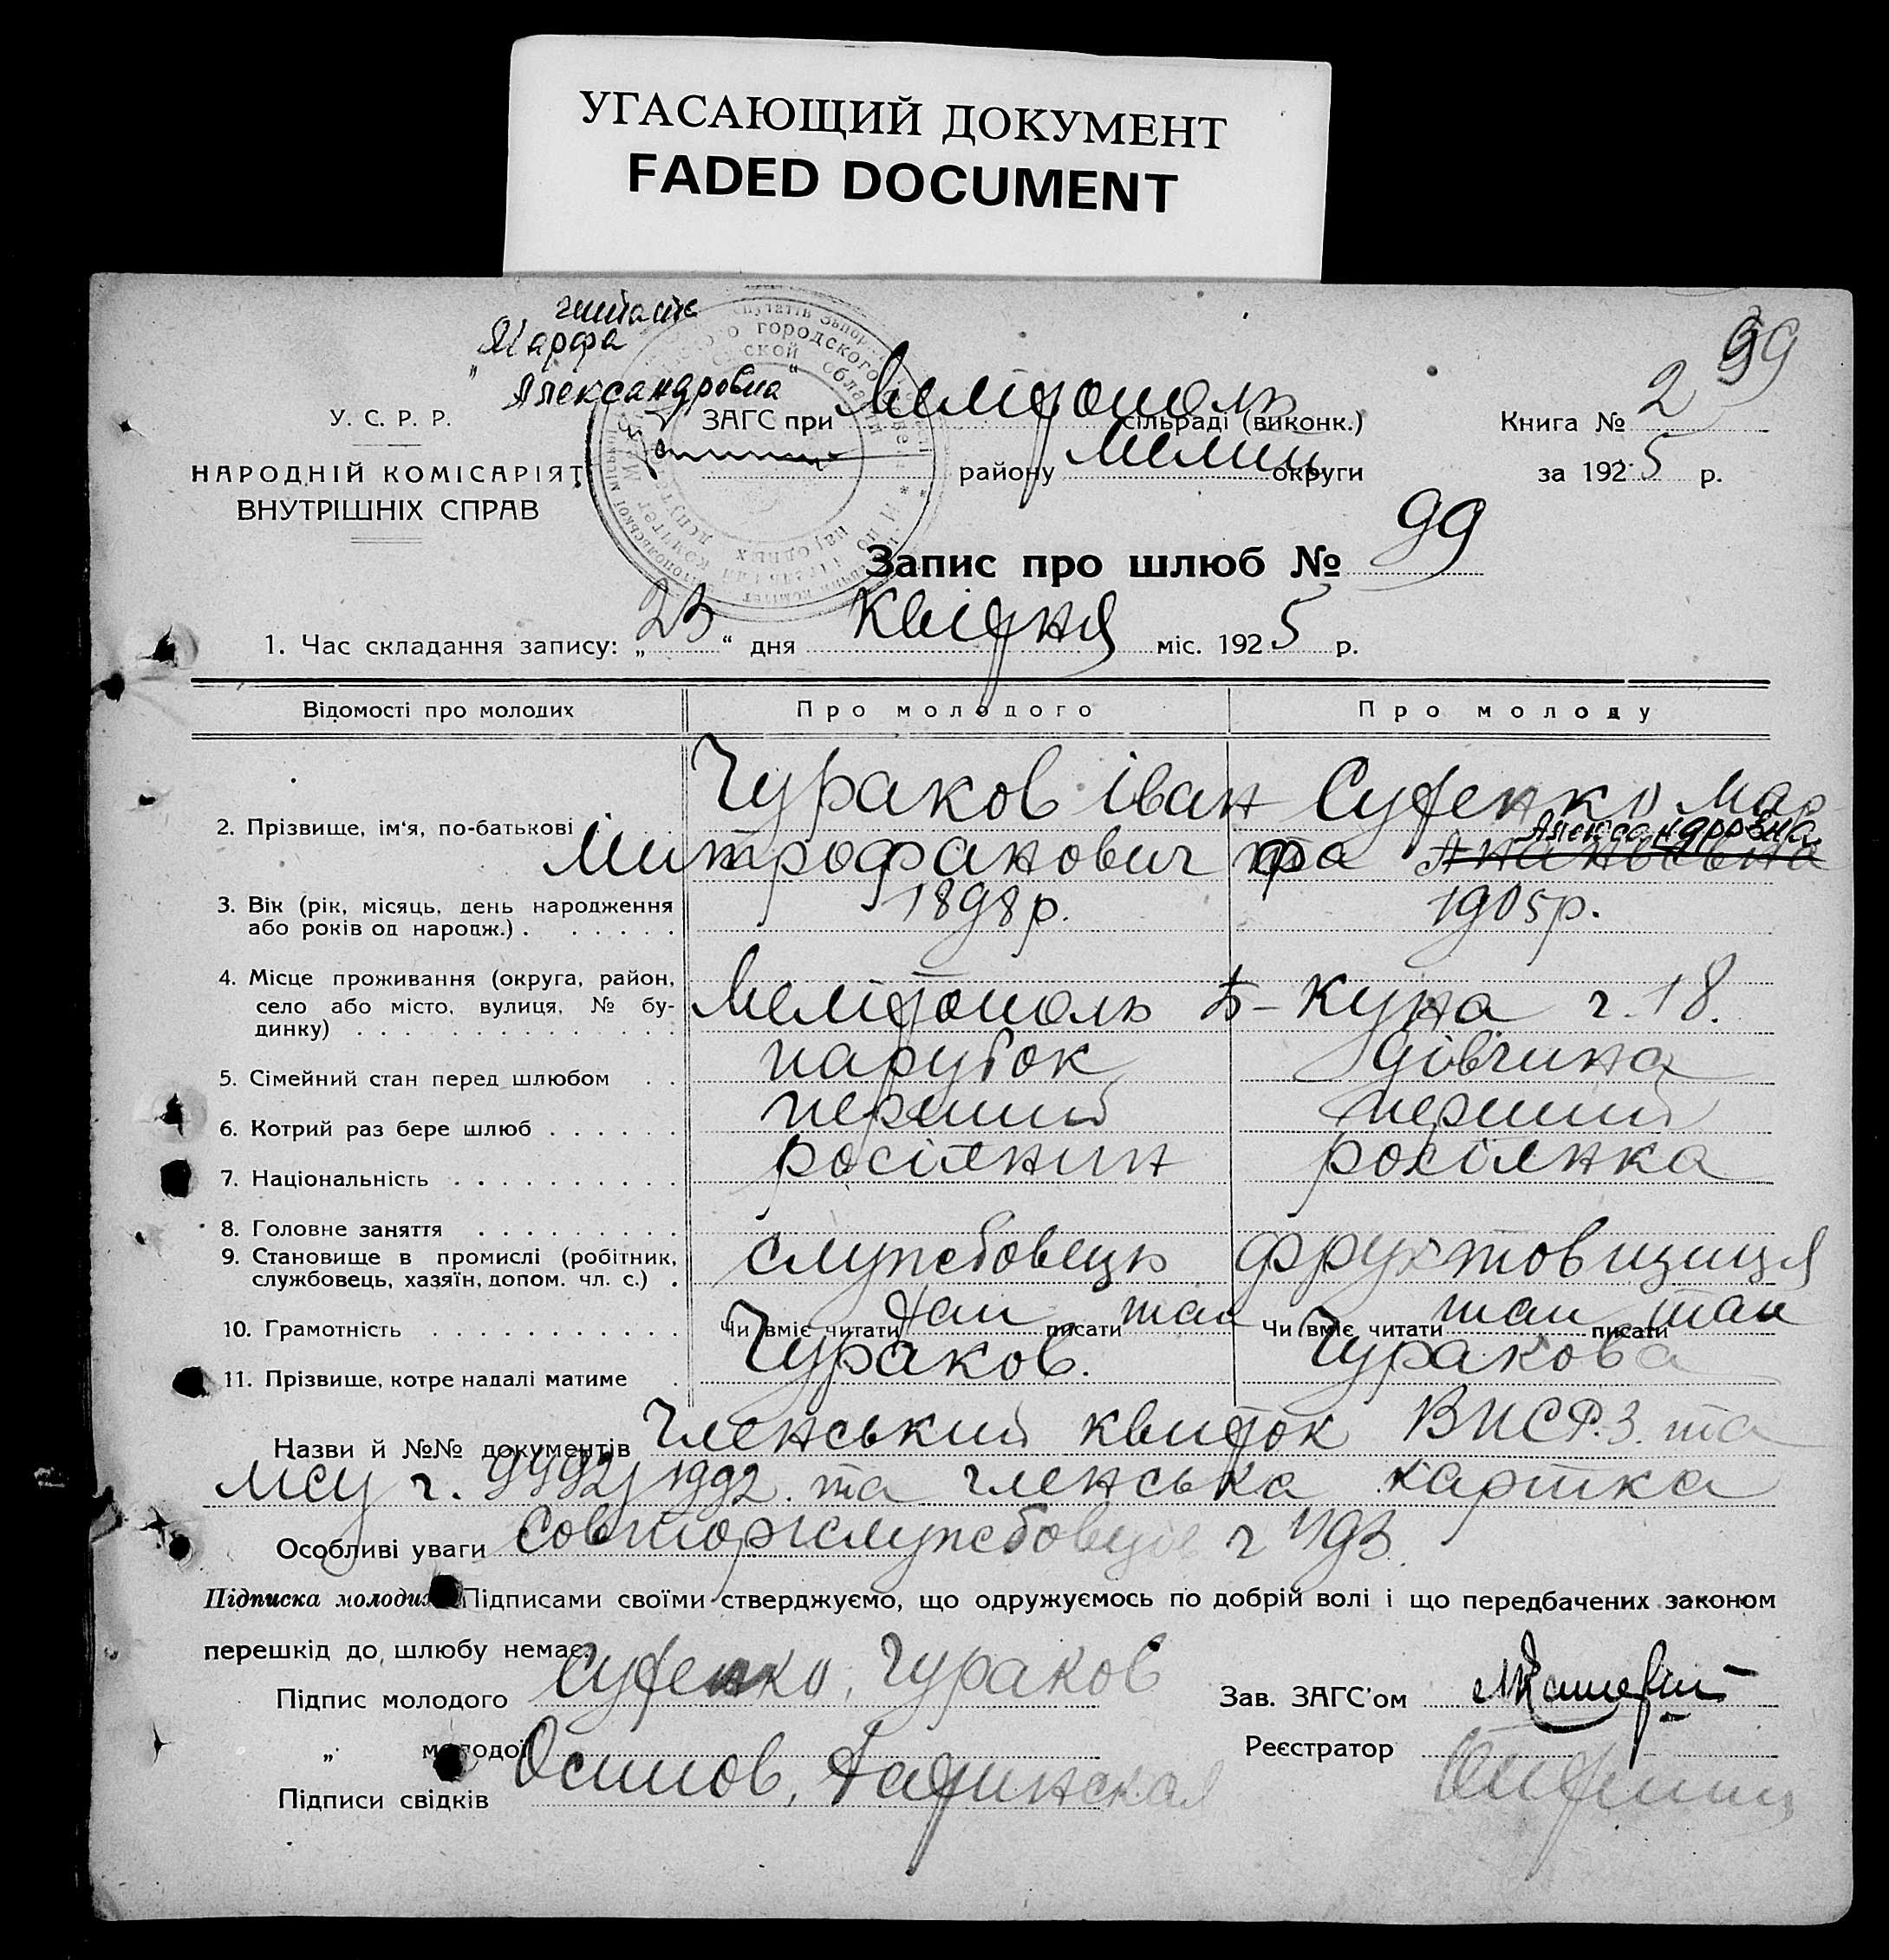 УГАСАЮЩИЙ ДОКУМЕНТ
FADED DOCUMENT
читать
„Марфа
Александровна“
99
У. С. Р. Р.
ЗАГС при Мелітополь сільраді (виконк.)
Книга № 2
НАРОДНІЙ КОМІСАРІЯТ
ВНУТРІШНІХ СПРАВ
району Мелит округи
за 1925 р.
Запис про шлюб № 99
1. Час складання запису: „23“ дня Квітня міс. 1925 р.
Відомості про молодих
Про молодого
Про молоду
2. Прізвище, ім‘я, по-батькові
Чураков Іван
Митрофанович
Суфенко Мар
фа Александровна
3. Вік (рік, місяць, день народження
або років од народж.)
1898р.
1905р.
4. Місце проживання (округа, район,
село або місто, вулиця, № бу-
динку)
Мелітополь Б-Куна ч. 18.
5. Сімейний стан перед шлюбом
парубок
дівчина
6. Котрий раз бере шлюб
перший
перший
7. Національність
росіянин
росіянка
8. Головне заняття
9. Становище в промислі (робітник,
службовець, хазяїн, допом. чл. с.)
службовець
фруктовщиця
10. Грамотність
Чи вміє читати так писати так
Чи вміє читати так писати так
11. Прізвище, котре надалі матиме
Чураков.
Чуракова
Назви й №№ документів Членський квиток ВПСР.З. та
МСУ ч. 1992. та членська картка
Особливі уваги Совторгслужбовця ч 493.
Підписка молодих Підписами своїми стверджуємо, що одружуємось по добрій волі і що передбачених законом
перешкід до шлюбу немає.
Підпис молодого Суфенко, Чураков
Зав. ЗАГС’ом
„ молодої
Реєстратор
Підписи свідків Осипов,